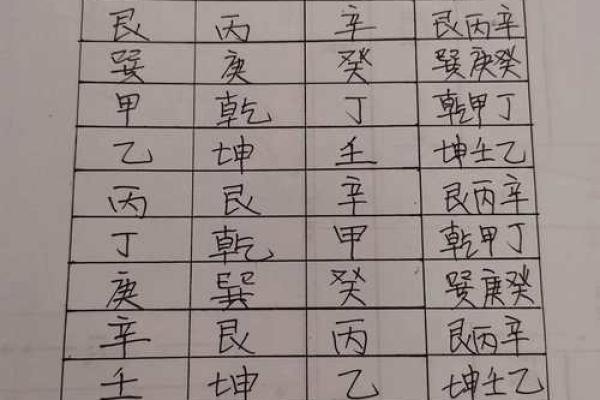 艮 丙 辛 艮丙辛
巽 庚 癸 巽庚癸
甲 乾 丁 乾甲丁
乙 坤 壬 坤壬乙
丙 艮 辛 艮丙辛
丁 乾 甲 乾甲丁
庚 巽 癸 巽庚癸
辛 艮 丙 艮丙辛
壬 坤 乙 坤壬乙